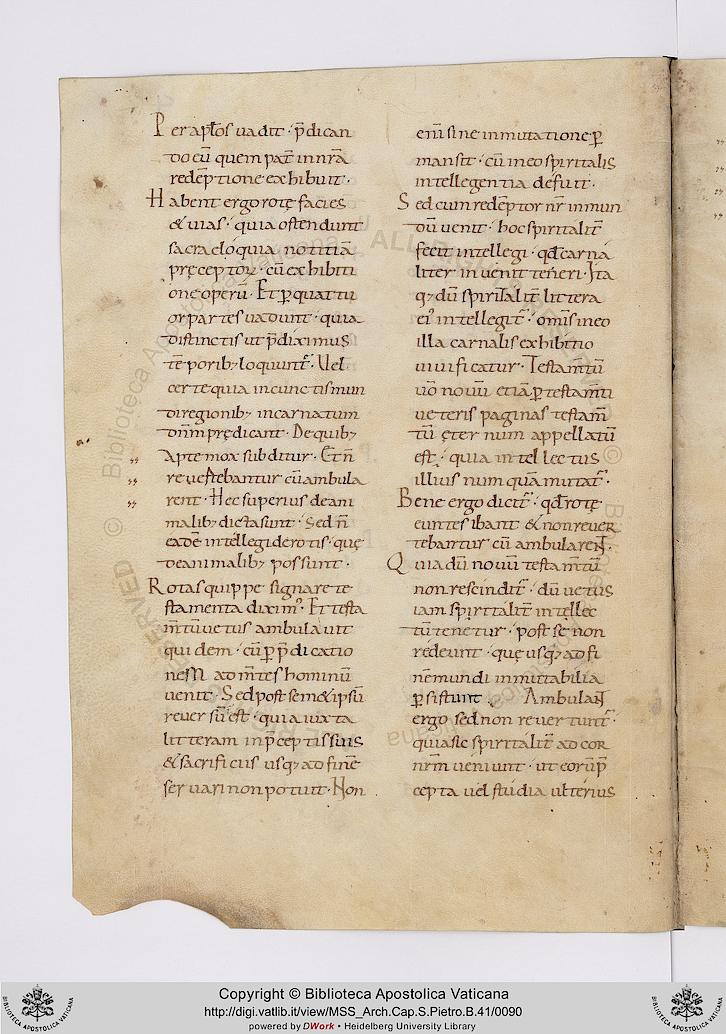 Per apłos uadit · p̄dican
do eū quem pat̄ in nr̄ā
redēptione exhibuit ·
Habent ergo rotę facies
& uias · quia ostendunt
sacra eloquia notitiā
pręceptoꝝ · cū exhibiti
one operū · Et ꝑ quattu
or partes uadunt · quia
distinctis ut p̄diximus
tēporib; loquunt̄ · Uel
certe quia in cunctis mun
di regionib; incarnatum
dn̄m prędicant · De quib;
apte mox subditur · Et n̄
reuertebantur cū ambula
rent · Hec superius de ani
malib; dicta sunt · Sed n̄
eadē intellegi de rotis · quę
de animalib; possunt ·
Rotas quippe signare te
stamenta diximꝰ · Et testa
m̄tū uetus ambulauit
quidem · cū ꝑ p̄dicatio
nem ad m̄tes hominū
uenit · Sed post sem& ipsū
reuersū est · quia iuxta
litteram in p̄ceptis suis
& sacrificiis usq; ad finē
seruari non potuit · Non
eni̅ sine inmutatione ꝑ
mansit · cū in eo spiritalis
intellegentia defuit ·
Sed cum redēptor nr̄ in mun
dū uenit · hoc spiritalit̄
fecit intellegi · qđ carna
liter inuenit teneri · Ita
q; dū spiritalit̄ littera
eiꝰ intellegit̄ · omīs in eo
illa carnalis exhibitio
uiuificatur · Testam̄tū
uō nouū etiā ꝑ testam̄ti
ueteris paginas testam̄
tū ęternum appellatū
est · quia intellectus
illius numquā mutat̄ ·
Bene ergo dicit̄ · qđ rotę
euntes ibant & non reuer
tebantur cū ambularent ·
Quia dū nouū testam̄tū
non rescindit̄ · dū uetus
iam spiritalit̄ intellec
tū tenetur · post se non
redeunt · quę usq; ad fi
nē mundi inmutabilia
ꝑsistunt · Ambulant
ergo sed non reuertunt̄ ·
quia sic spiritalit̄ ad cor
nr̄m ueniunt · ut eorū p̄
cepta uel studia ulterius
Copyright © Biblioteca Apostolica Vaticana
http://digi.vatlib.it/view/MSS_Arch.Cap.S.Pietro.B.41/0090
powered by DWork • Heidelberg University Library